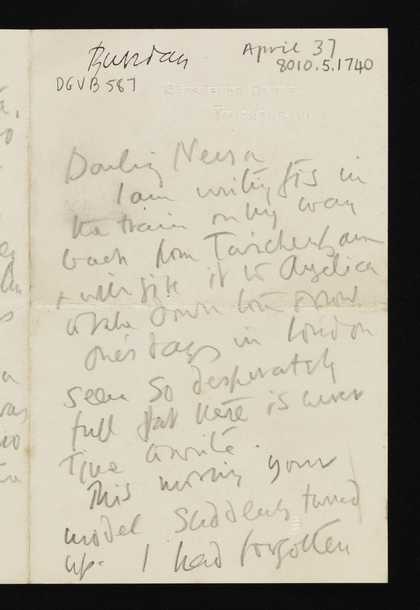 April 37
8010.5.1740
DGVB 587
Darling Nessa
I am writing this in
the train on my way
back from Twickenham
& will give it to Angelica
to take down tomorrow.
One's days in London
seem so desperately
full that there is never
time to write.
This morning your
model suddenly turned
up. I had forgotten